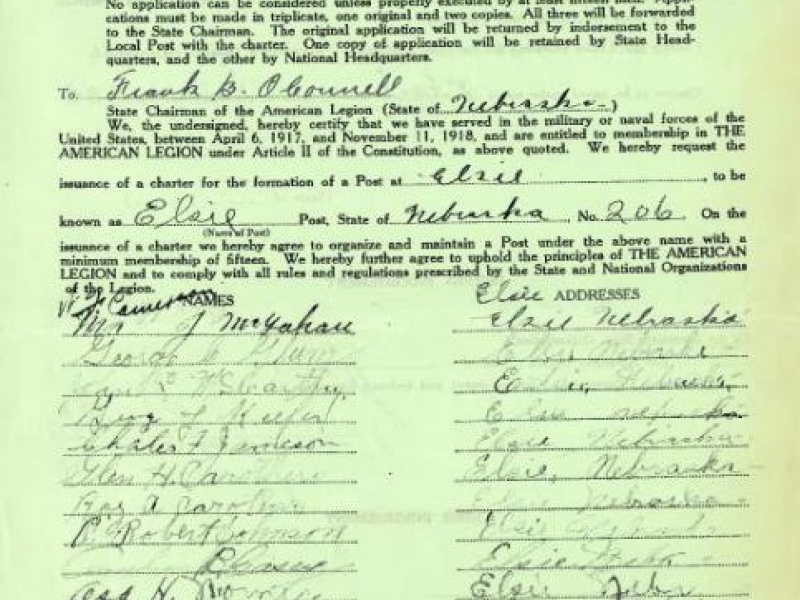 No application can be considered unless properly executed by at least fifteen men. Appli-
cations must be made in triplicate, one original and two copies. All three will be forwarded
to the State Chairman. The original application will be returned by indorsement to the
Local Post with the charter. One copy of application will be retained by State Head-
quarters, and the other by National Headquarters.
To Frank B. O'Connell
State Chairman of the American Legion (State of Nebraska)
We, the undersigned, hereby certify that we have served in the military or naval forces of the
United States, between April 6, 1917, and November 11, 1918, and are entitled to membership in THE
AMERICAN LEGION under Article II of the Constitution, as above quoted. We hereby request the
issuance of a charter for the formation of a Post at Elsie, to be
known as Elsie Post, State of Nebraska, No. 206. On the
(Name of Post)
issuance of a charter we hereby agree to organize and maintain a Post under the above name with a
minimum membership of fifteen. We hereby further agree to uphold the principles of THE AMERICAN
LEGION and to comply with all rules and regulations prescribed by the State and National Organizations
of the Legion.
Cameron NAMES Elsie ADDRESSES
J McGahan Elsie Nebraska
George
Elsie
Jameson Elsie Nebraska
Glen H. Carothers Elsie, Nebraska
Roy A Carothers Elsie Nebraska
Robert Johnson Elsie
Elsie Nebr
Asa H. Elsie Nebr